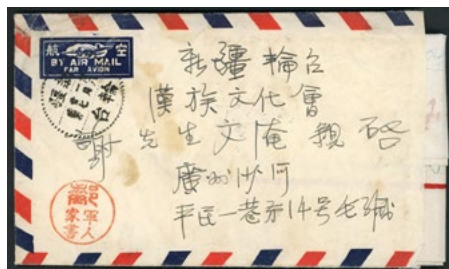 航空
BY AIR MAIL
PAR AVION
新疆輪台
漢族文化會
謝先生文淹親啓
廣州沙河
平民一巷第14号
輪台
軍人
家書